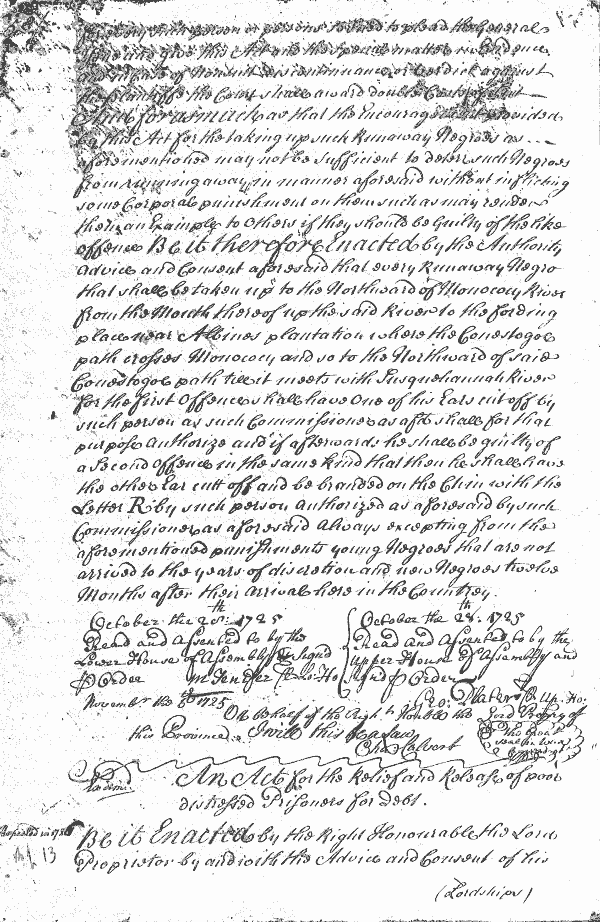 person or persons to plead the General
give this Act and the Special matter in Evidence
of Nonsuit discontinuance or Verdict against
the plaintiffe the Court shall award double Costs
And forasmuch as that the Encouragement provided
by this Act for the taking up such Runaway Negroes as
aforementioned may not be sufficient to deterr such Negroes
from running away in manner aforesaid without inflicting
some Corporal punishment on them such as may render
them an Example to others if they should be Guilty of the like
offence Be it therefore Enacted by the Authority
advice and Consent aforesaid that every Runaway Negro
that shall be taken up to the Northward of Monococy River
from the Mouth thereof up the said River to the fording
place near Albines plantation where the Conestogoe
path crosses Monococy and so to the Northward of said
Conestogoe path till it meets with Susquehannah River
for the first Offence shall have One of his Ears cut off by
such person as such Commissioner as afd shall for that
purpose Authorize and if afterwards he shall be guilty of
a Second Offence in the same kind that then he shall have
the other Ear cutt off and be branded on the Chin with the
Letter R by such person Authorized as aforesaid by such
Commissioner as aforesaid Always excepting from the
aforementioned punishments young Negroes that are not
arrived to the years of discretion and new Negroes twelve
Months after their arrival here in the Country.
October the 28th: 1725
Read and Assented to by the
Lower House of Assembly & Signd
P Order M Jenifer Cl Lo: Ho
October the 28th: 1725
Read and Assented to by the
Upper House of Assembly and
Signd P Order
Geo: Plater Cl Up: Ho:
November the 6th 1725
On Behalf of the Right Honble the Lord Propry of
this Province I will this be a Law
Cha: Calvert
The Great
Seal
An Act for the Relief and Release of poor
distressed Prisoners for Debt.
13
Be it Enacted by the Right Honourable the Lord
Proprietor by and with the Advice and Consent of his
(Lordships)